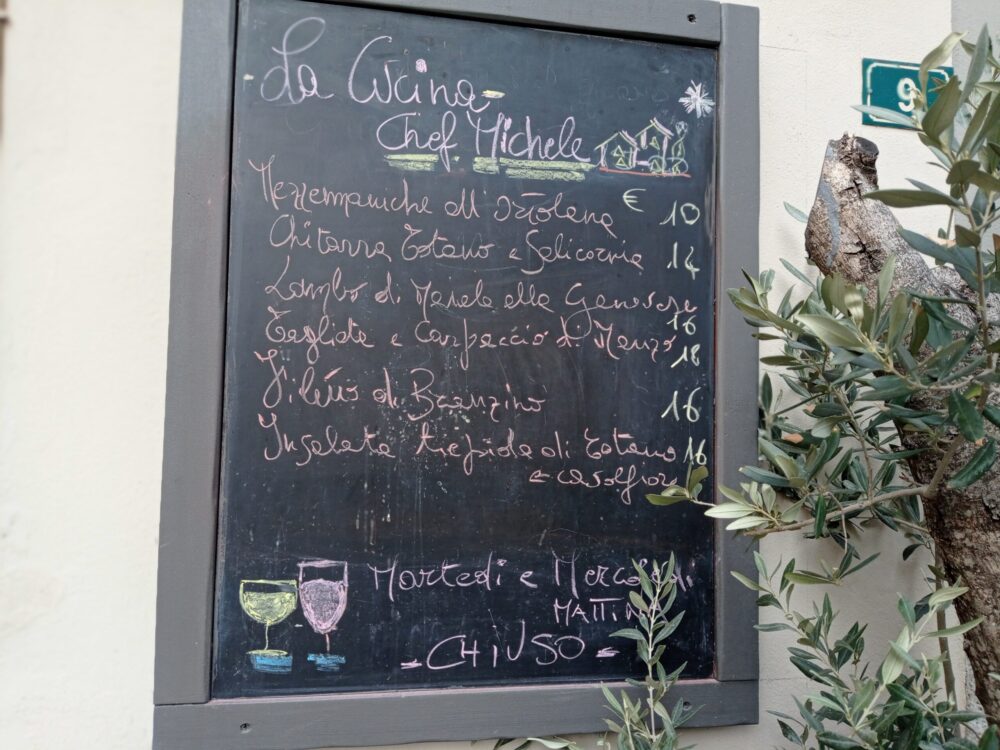 La Cucina
Chef Michele
9
Mezzemaniche all'Ortolana € 10
Chitarra Totano e Salicornia 14
Lombo di Maiale alla Genovese
16
Tagliata e Carpaccio di Manzo 18
Filetto di Branzino 16
Insalata tiepida di Totano 16
e cavolfiore
Martedì e Mercoledì
MATTINA
- CHIUSO -